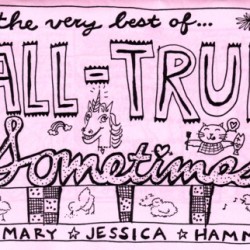 the very best of...
ALL-TRU
Sometimes
MARY ☆ JESSICA ☆ HAMM